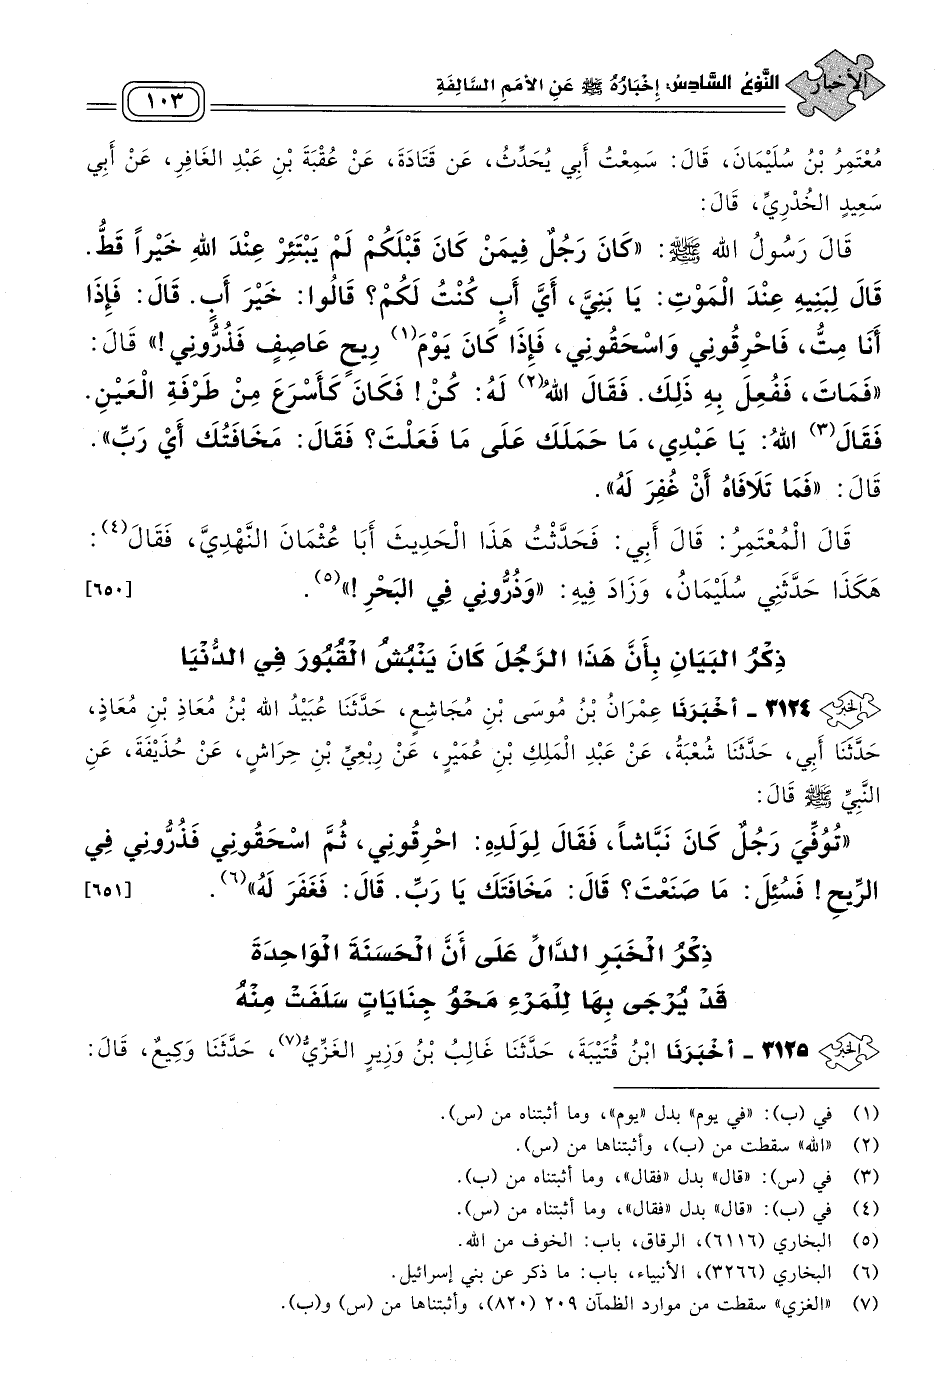 الأخبار
النَّوْعُ السَّادِسُ: إِخْبَارُهُ ﷺ عَنِ الأُمَمِ السَّالِفَةِ
١٠٣
مُعْتَمِرُ بْنُ سُلَيْمَانَ، قَالَ: سَمِعْتُ أَبِي يُحَدِّثُ، عَن قَتَادَةَ، عَنْ عُقْبَةَ بْنِ عَبْدِ الغَافِرِ، عَنْ أَبِي
سَعِيدٍ الخُدْرِيِّ، قَالَ:
قَالَ رَسُولُ اللهِ ﷺ: «كَانَ رَجُلٌ فِيمَنْ كَانَ قَبْلَكُمْ لَمْ يَبْتَئِرْ عِنْدَ اللهِ خَيْراً قَطُّ.
قَالَ لِبَنِيهِ عِنْدَ الْمَوْتِ: يَا بَنِيَّ، أَيَّ أَبٍ كُنْتُ لَكُمْ؟ قَالُوا: خَيْرَ أَبٍ. قَالَ: فَإِذَا
أَنَا مِتُّ، فَاحْرِقُونِي وَاسْحَقُونِي، فَإِذَا كَانَ يَوْمَ(١) رِيحٍ عَاصِفٍ فَذُرُّونِي!» قَالَ:
«فَمَاتَ، فَفُعِلَ بِهِ ذَلِكَ. فَقَالَ اللهُ(٢) لَهُ: كُنْ! فَكَانَ كَأَسْرَعَ مِنْ طَرْفَةِ الْعَيْنِ.
فَقَالَ(٣) اللهُ: يَا عَبْدِي، مَا حَمَلَكَ عَلَى مَا فَعَلْتَ؟ فَقَالَ: مَخَافَتُكَ أَيْ رَبِّ».
قَالَ: «فَمَا تَلَافَاهُ أَنْ غُفِرَ لَهُ».
قَالَ الْمُعْتَمِرُ: قَالَ أَبِي: فَحَدَّثْتُ هَذَا الْحَدِيثَ أَبَا عُثْمَانَ النَّهْدِيَّ، فَقَالَ(٤):
هَكَذَا حَدَّثَنِي سُلَيْمَانُ، وَزَادَ فِيهِ: «وَذُرُّونِي فِي البَحْرِ!»(٥). [٦٥٠]
ذِكْرُ البَيَانِ بِأَنَّ هَذَا الرَّجُلَ كَانَ يَنْبُشُ الْقُبُورَ فِي الدُّنْيَا
الخبر ٣١٢٤ ـ أَخْبَرَنَا عِمْرَانُ بْنُ مُوسَى بْنِ مُجَاشِعٍ، حَدَّثَنَا عُبَيْدُ اللهِ بْنُ مُعَاذِ بْنِ مُعَاذٍ،
حَدَّثَنَا أَبِي، حَدَّثَنَا شُعْبَةُ، عَنْ عَبْدِ الْمَلِكِ بْنِ عُمَيْرٍ، عَنْ رِبْعِيِّ بْنِ حِرَاشٍ، عَنْ حُذَيْفَةَ، عَنِ
النَّبِيِّ ﷺ قَالَ:
«تُوُفِّيَ رَجُلٌ كَانَ نَبَّاشاً، فَقَالَ لِوَلَدِهِ: احْرِقُونِي، ثُمَّ اسْحَقُونِي فَذُرُّونِي فِي
الرِّيحِ! فَسُئِلَ: مَا صَنَعْتَ؟ قَالَ: مَخَافَتَكَ يَا رَبِّ. قَالَ: فَغَفَرَ لَهُ»(٦). [٦٥١]
ذِكْرُ الْخَبَرِ الدَّالِّ عَلَى أَنَّ الْحَسَنَةَ الْوَاحِدَةَ
قَدْ يُرْجَى بِهَا لِلْمَرْءِ مَحْوُ جِنَايَاتٍ سَلَفَتْ مِنْهُ
الخبر ٣١٢٥ ـ أَخْبَرَنَا ابْنُ قُتَيْبَةَ، حَدَّثَنَا غَالِبُ بْنُ وَزِيرٍ الغَزِّيُّ(٧)، حَدَّثَنَا وَكِيعٌ، قَالَ:
(١) في (ب): «في يوم» بدل «يوم»، وما أثبتناه من (س).
(٢) «الله» سقطت من (ب)، وأثبتناها من (س).
(٣) في (س): «قال» بدل «فقال»، وما أثبتناه من (ب).
(٤) في (ب): «قال» بدل «فقال»، وما أثبتناه من (س).
(٥) البخاري (٦١١٦)، الرقاق، باب: الخوف من الله.
(٦) البخاري (٣٢٦٦)، الأنبياء، باب: ما ذكر عن بني إسرائيل.
(٧) «الغزي» سقطت من موارد الظمآن ٢٠٩ (٨٢٠)، وأثبتناها من (س) و(ب).